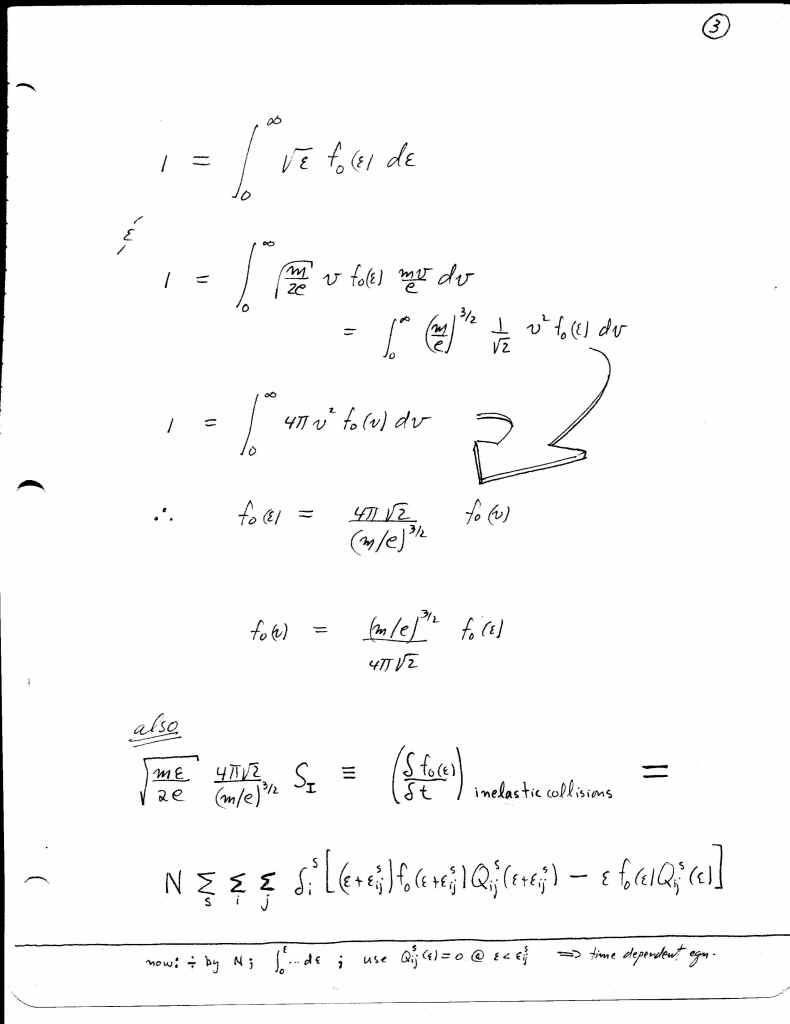 ③
1 = ∫₀^∞ √ε f₀(ε) dε
&
1 = ∫₀^∞ √(m/2e) v f₀(ε) (mv/e) dv
= ∫₀^∞ (m/e)^{3/2} (1/√2) v² f₀(ε) dv
1 = ∫₀^∞ 4π v² f₀(v) dv
∴ f₀(ε) = (4π√2)/((m/e)^{3/2}) f₀(v)
f₀(v) = ((m/e)^{3/2})/(4π√2) f₀(ε)
also
√(mε/2e) (4π√2)/((m/e)^{3/2}) S_I ≡ (δf₀(ε)/δt) inelastic collisions =
N Σ_s Σ_i Σ_j δ_i^s [(ε+ε_ij^s) f₀(ε+ε_ij^s) Q_ij^s(ε+ε_ij^s) − ε f₀(ε) Q_ij^s(ε)]
now: ÷ by N; ∫₀^ε ... dε ; use Q_ij^s(ε) = 0 @ ε < ε_ij^s ⇒ time dependent eqn.